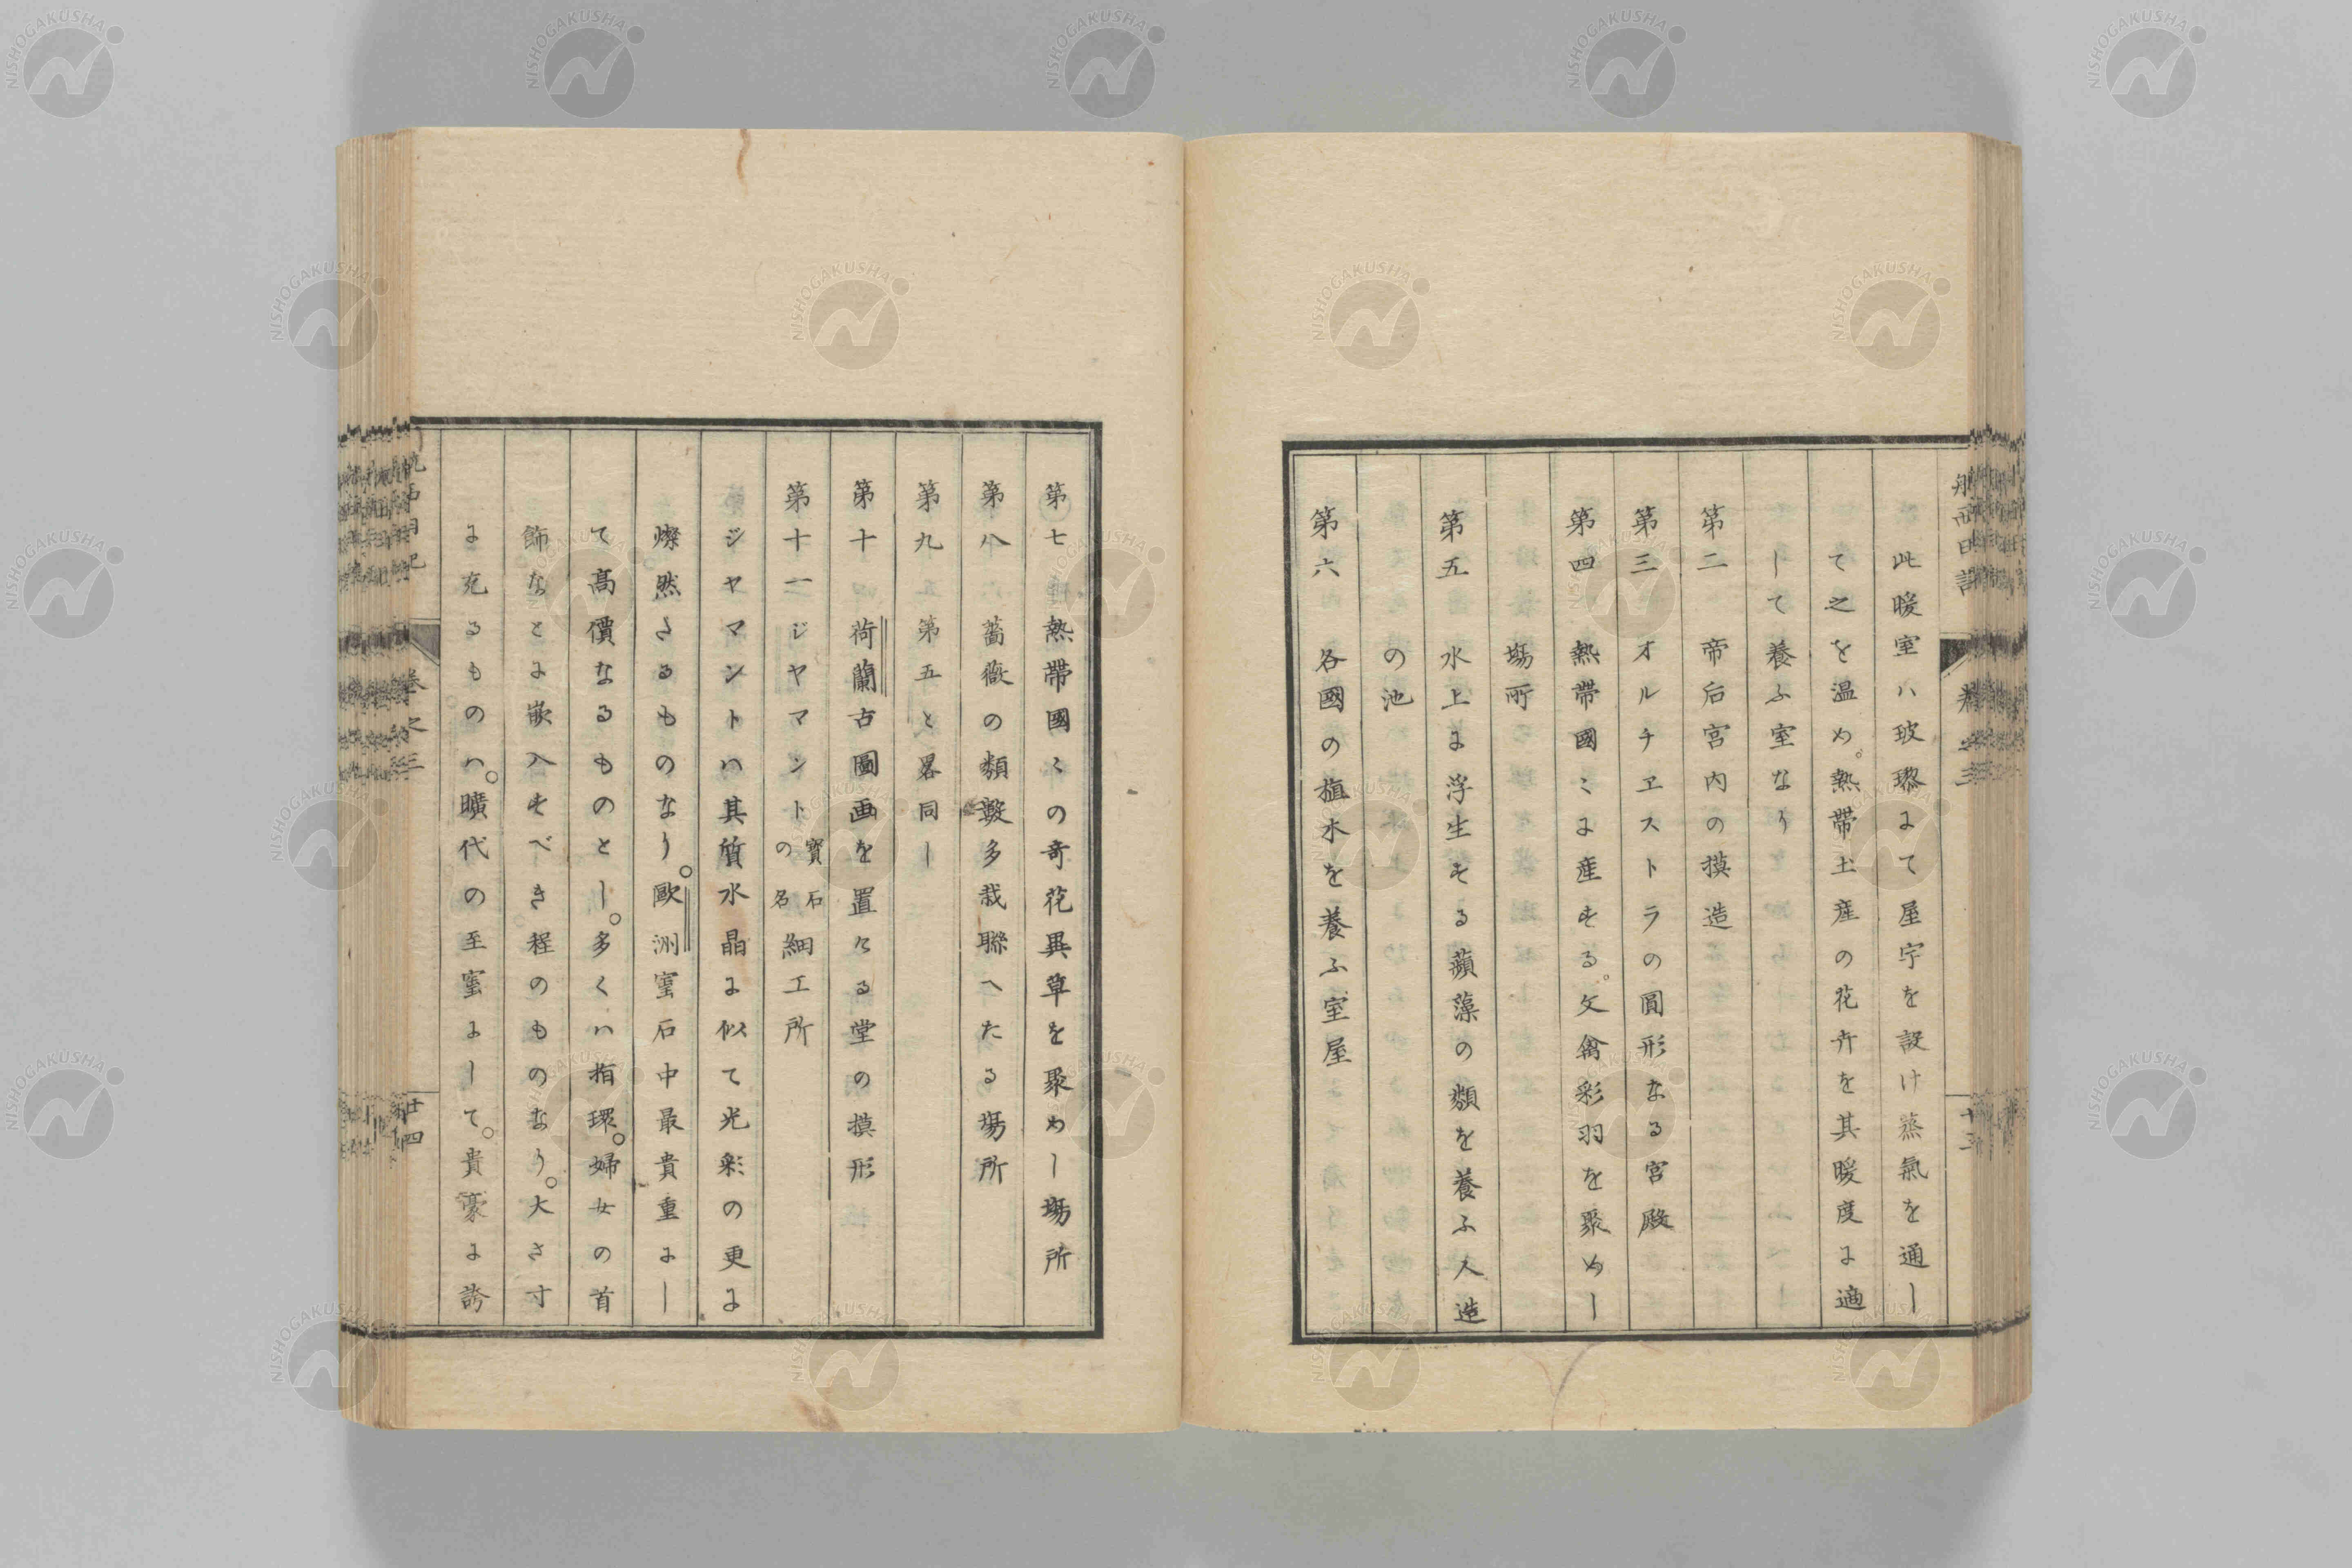 此暖室ハ玻瓈にて屋宇を設け蒸氣を通し
て之を温め。熱帶土産の花卉を其暖度に適
して養ふ室なり
第二 帝后宮内の摸造
第三 オルチヱストラの圓形なる宮殿
第四 熱帶國ミに産する。文禽彩羽を聚めし
塲所
第五 水上に浮生する蘋藻の類を養ふ人造
の池
第六 各國の植木を養ふ室屋
航西日記 卷之三
第七 熱帶國くの奇花異草を聚めし塲所
第八 薔薇の類數多栽聯へたる塲所
第九 第五と畧同し
第十 荷蘭古圖画を置ける堂の摸形
第十一 ジヤマント寶石の名細工所
ジヤマントハ其質水晶に似て光彩の更に
燦然たるものなり。歐洲寳石中最貴重にし
て高價なるものとし。多くハ指環。婦女の首
飾なとに嵌入すべき程のものなり。大さ寸
に充るものハ。曠代の至寳にして。貴豪に誇
卷之三 廿四
NISHOGAKUSHA